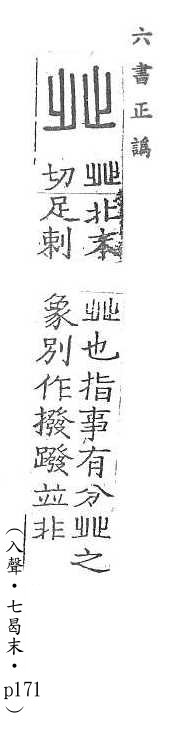 六書正譌
癶
癶北末
切足剌
癶也指事有分癶之
象別作撥蹳並非
(入聲・七曷末・p171)